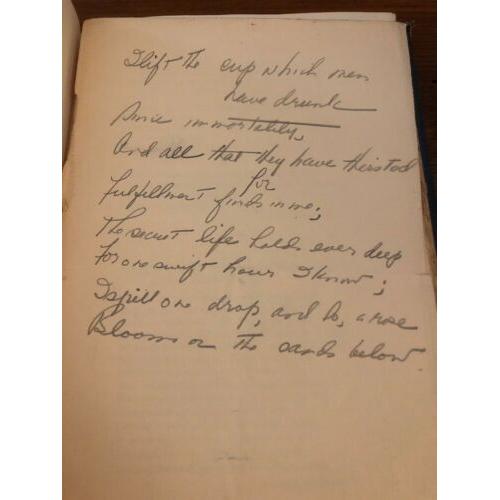 I lift the cup which men
have drunk
Since immortality,
And all that they have thirsted
for
fulfillment finds in me;
The secret life holds ever deep
For one swift hour I know;
I spill one drop, and lo, a rose
Blooms on the sands below